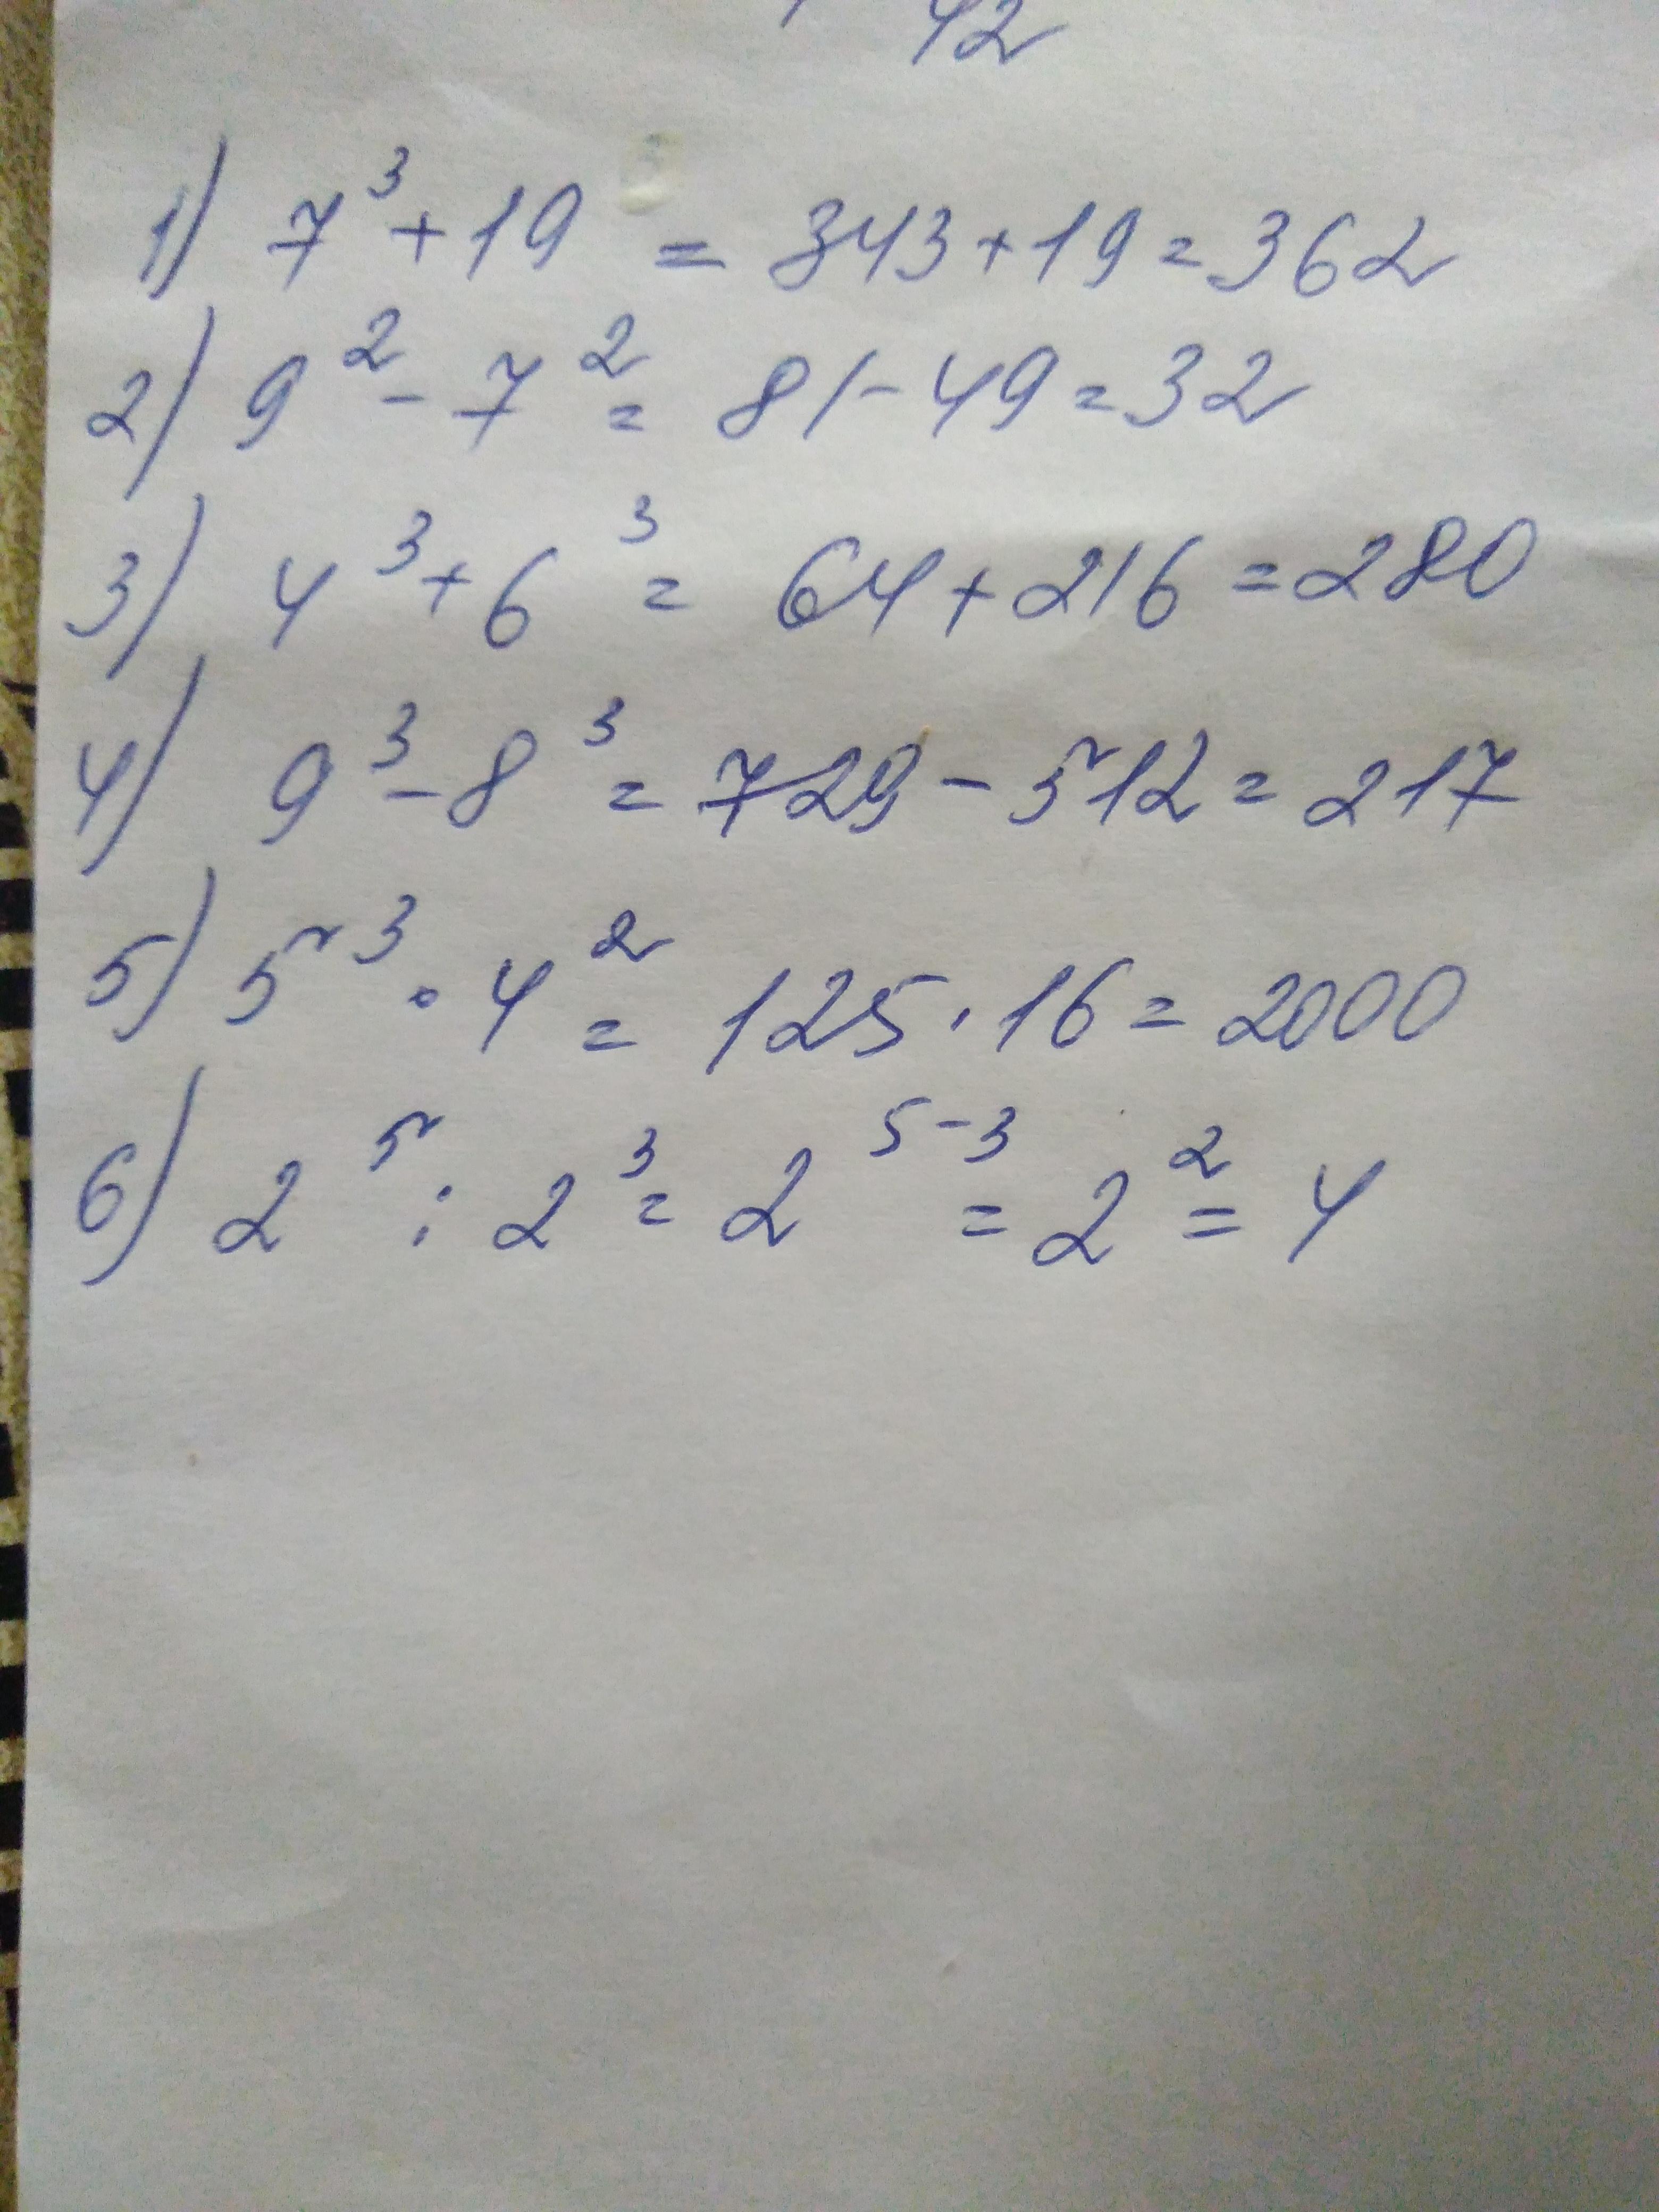 42
1) 7³ + 19 = 343 + 19 = 362
2) 9² - 7² = 81 - 49 = 32
3) 4³ + 6³ = 64 + 216 = 280
4) 9³ - 8³ = 729 - 512 = 217
5) 5³ · 4² = 125 · 16 = 2000
6) 2⁵ : 2³ = 2⁵⁻³ = 2² = 4